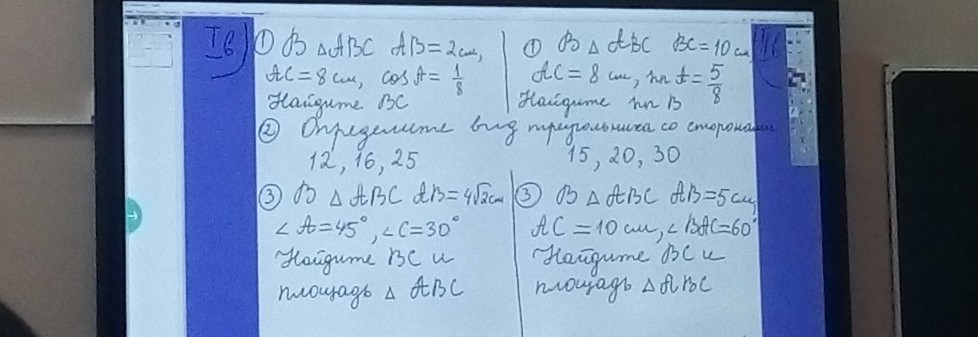 Iв
① В △ABC AB=2см,
AC=8 см, cos A=1/8
Найдите BC
IIв
① В △ABC BC=10 см
AC=8 см, sin A=5/8
Найдите sin B
② Определите вид треугольника со сторонами
12, 16, 25
15, 20, 30
③ В △ABC AB=4√2см
∠A=45°, ∠C=30°
Найдите BC и
площадь △ ABC
③ В △ABC AB=5см,
AC=10 см, ∠BAC=60°
Найдите BC и
площадь △ABC